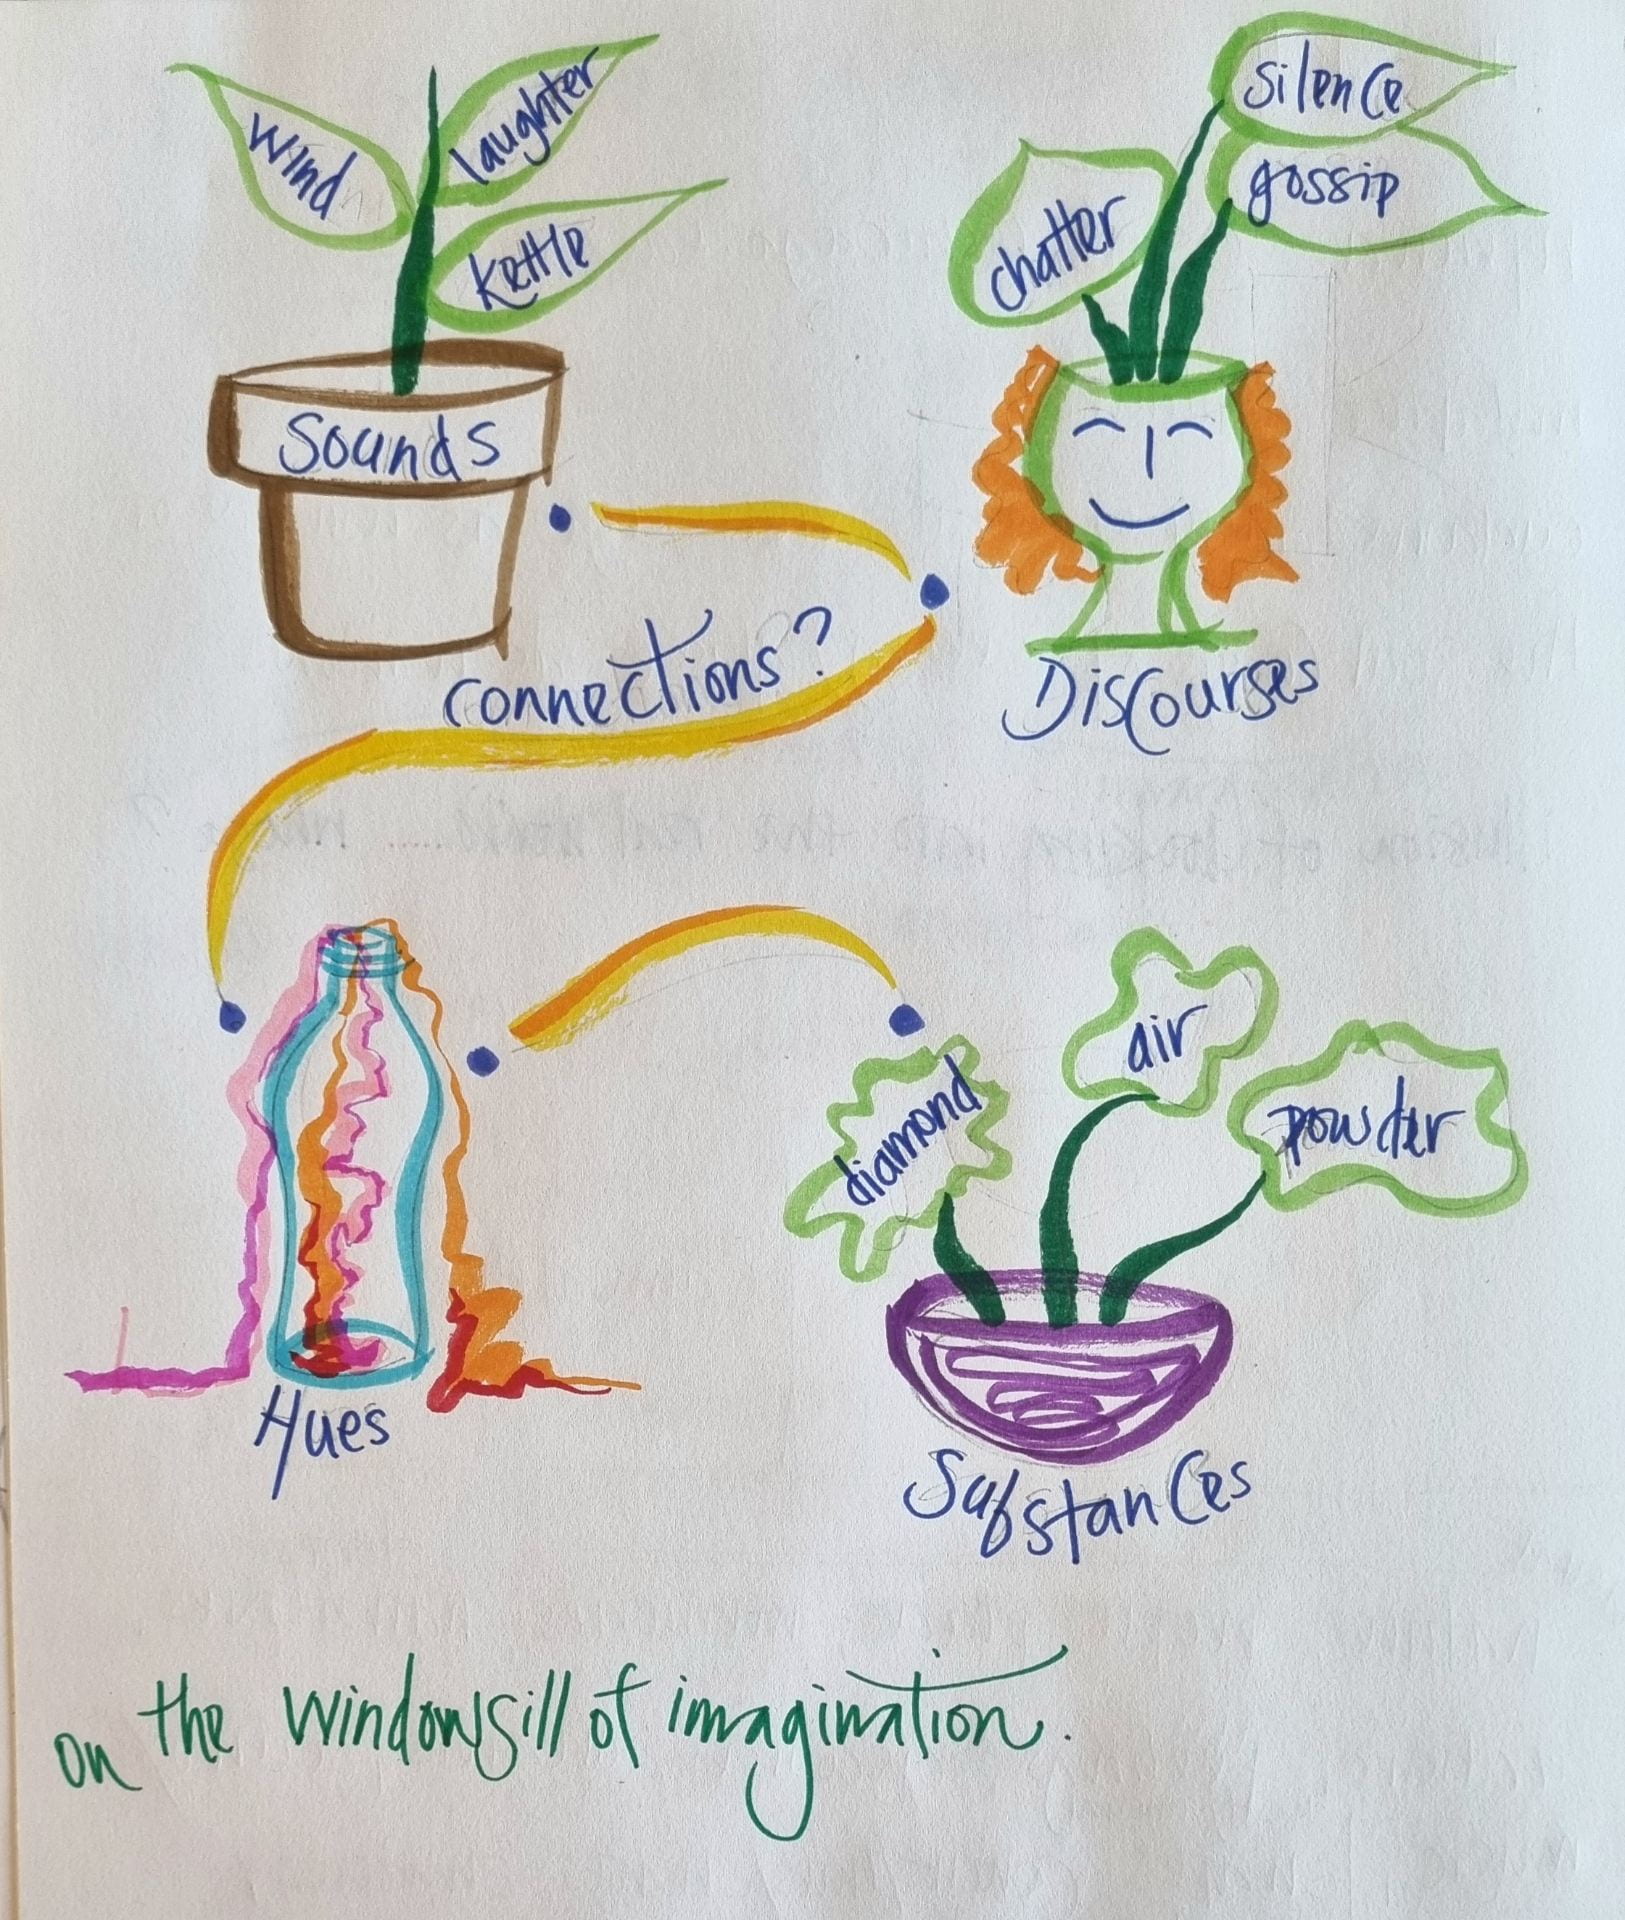 wind
laughter
kettle
Sounds
silence
gossip
chatter
Discourses
connections?
Hues
diamond
air
powder
Substances
on the windowsill of imagination.